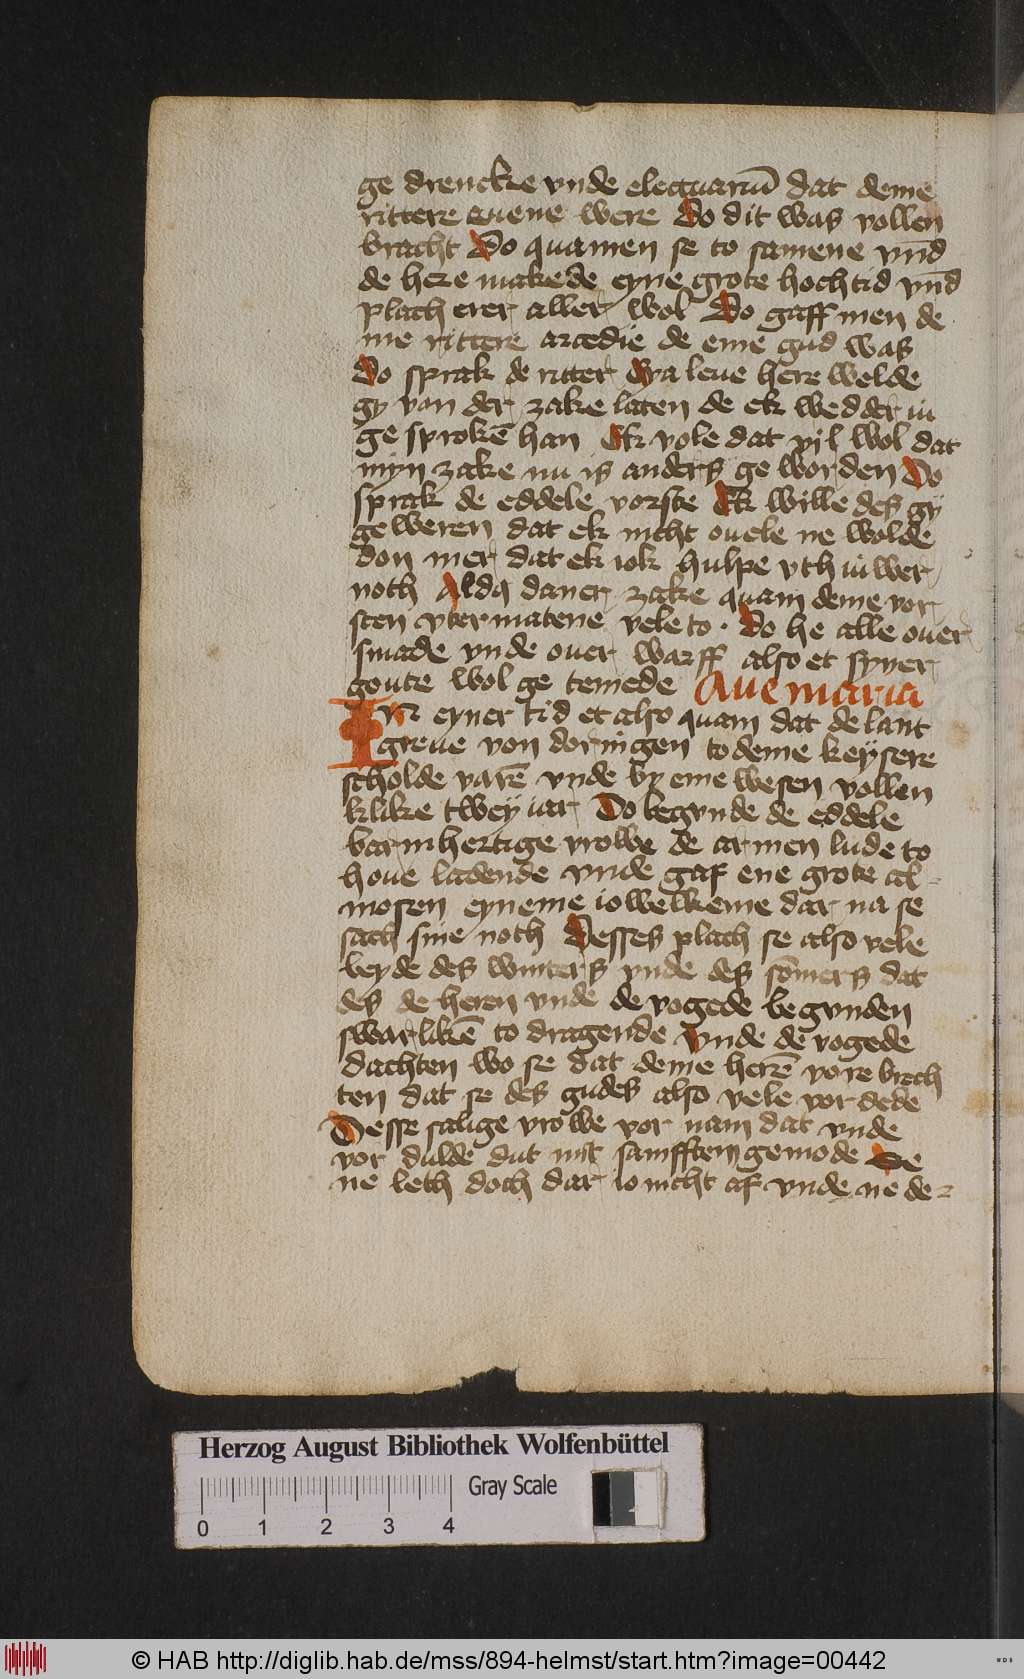 ge drencke vnde electuariū dat deme
rittere euene were Do dit was vollen
bracht Do quamen se to samene vn̄d
de here makede eyne grote hochtid vn̄d
plach erer aller wol Do gaff men de
me rittere arcedie de eme gud was
Do sprak de ritter Eya leue here welde
gy von der zake laten de ek wedder iu
ge sprokē han Ek vole dat vil wol dat
mijn zake nu is anders ge worden Do
sprak de eddele vorste Ek wille des gy
geweren dat ek nicht ouele ne wolde
don mer dat ek iok hulpe vth iuwer
noth Aldq daner zake quam deme vor
sten vtermatene vele to · Do he alle ouer
smade vnde ouer warff also et syner
goute wol ge temede Aue maria
IN eyner tid et also quam dat de lant
greue von doringen to deme keysere
scholde varē vnde by eme wesen vollen
klike twey iar Do begvnde de eddele
barmhertige vrowe de armen lude to
houe ladende vnde gaf ene grote al-
mosen eyneme iowelkeme dar na se
sach sine noth Desses plach se also vele
beyde des winters vnde des sōmers dat
des de heren vnde de vogede begvnden
swarlikē to dragende Vnde de vogede
dachten wo se dat deme herē vore brech
ten dat se des gudes also vele vor dede
Desse salige vrowe vor nam dat vnde
vor dulde dat mit samfften gemode Se
ne leth doch dar io nicht af vnde ne de
Herzog August Bibliothek Wolfenbüttel
Gray Scale
0 1 2 3 4
© HAB http://diglib.hab.de/mss/894-helmst/start.htm?image=00442